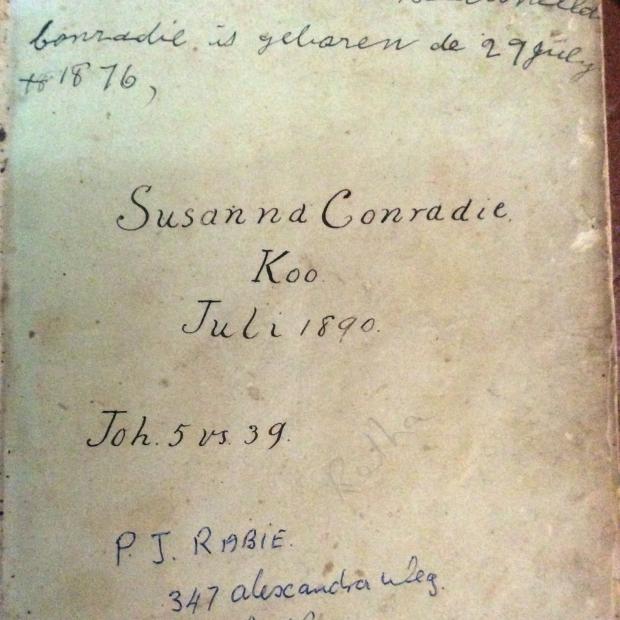 conradie is geboren de 29 July
1876,
Susanna Conradie.
Koo.
Juli 1890.
Joh. 5 vs. 39.
P. J. RABIE.
347 alexandra weg.